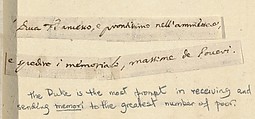 Duca è inverso, e prontissimo nell'ammettere,
e spedire i memoriali, massime de Poveri.
the Duke is the most prompt in receiving and
sending memori to the greatest number of poor.